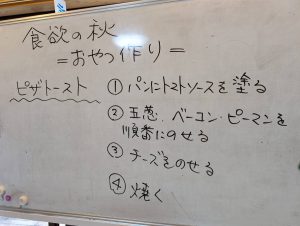 食欲の秋
=おやつ作り=
ピザトースト
① パンにトマトソースを塗る
② 玉葱、ベーコン・ピーマンを
順番にのせる
③ チーズをのせる
④ 焼く